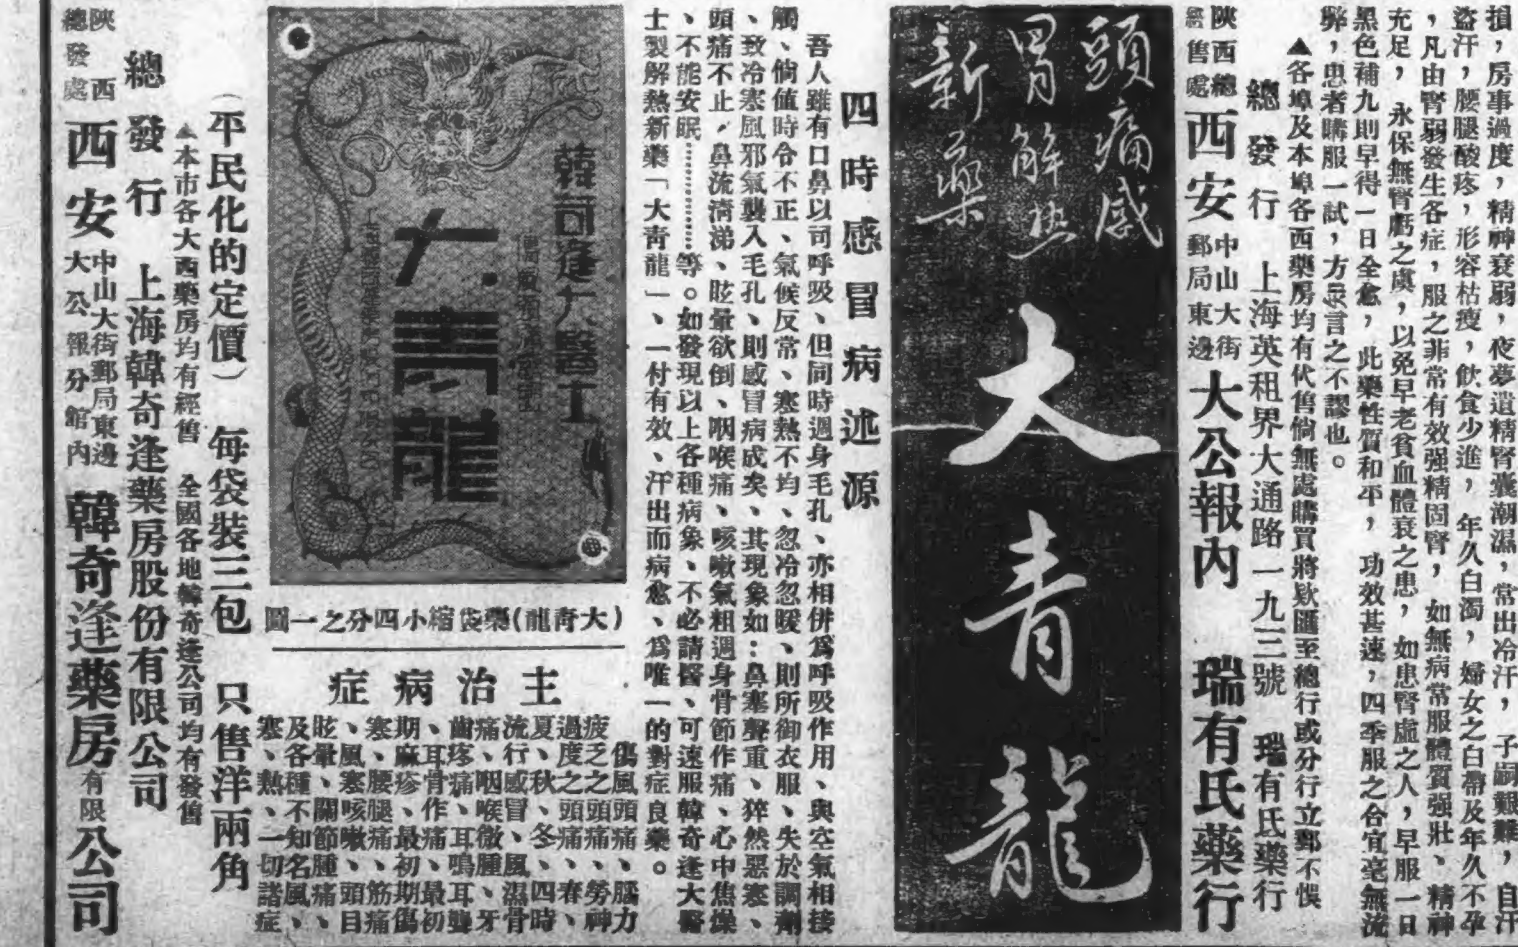 損，房事過度，精神衰弱，夜夢遺精腎囊潮濕，常出冷汗，子嗣艱難，自汗
盜汗，腰腿酸疼，形容枯瘦，飲食少進，年久白濁，婦女之白帶及年久不孕
，凡由腎弱發生各症，服之非常有效强精固腎，如無病常服體質强壯、精神
充足，永保無腎虧之虞，以免早老貧血體衰之患，如患腎虛之人，早服一日
黑色補九則早得一日全愈，此藥性質和平，功效甚速，四季服之合宜毫無流
弊，患者購服一試，方言之不謬也。
▲各埠及本埠各西藥房均有代售倘無處購買將欵匯至總行或分行立郵不悞
總發行 上海英租界大通路一九三號 瑞有氏藥行
陝西總售處 西安 中山大街郵局東邊 大公報內 瑞有氏藥行
頭痛感
冒解热
新藥
大青龍
四時感冒病述源
吾人雖有口鼻以司呼吸、但同時週身毛孔、亦相併爲呼吸作用、與空氣相接
觸、倘値時令不正、氣候反常、寒熱不均、忽冷忽暖、則所御衣服、失於調劑
、致冷寒風邪氣襲入毛孔、則感冒病成矣、其現象如：鼻塞聲重、猝然惡寒、
頭痛不止、鼻流淸涕、眩暈欲倒、咽喉痛、咳嗽氣粗週身骨節作痛、心中焦燥
、不能安眠…………等。如發現以上各種病象、不必請醫、可速服韓奇逢大醫
士製解熱新藥「大靑龍」、一付有效、汗出而病愈、爲唯一的對症良藥。
韓奇逢大醫士
大靑龍
圖一之分四小縮袋藥(龍靑大)
症病治主
傷風頭痛、腦力
疲乏之頭痛、勞神
過度之頭痛、春、
夏、秋、冬、四時
流行感冒、風濕骨
痛、咽喉微腫、牙
齒疼痛、耳鳴耳聾
、耳骨作痛、最初
期麻疹、最初期傷
寒、腰腿痛、筋痛
、風寒咳嗽、頭目
眩暈、關節腫痛、
及各種不知名風、
寒、熱、一切諸症
（平民化的定價） 每袋裝三包 只售洋兩角
▲本市各大西藥房均有經售 全國各地韓奇逢公司均有發售
總發行 上海韓奇逢藥房股份有限公司
陝西總發處 西安 中山大街郵局東邊大公報分館內 韓奇逢藥房有限公司